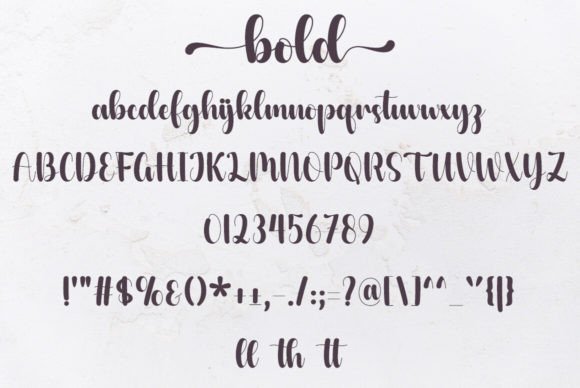 bold
abcdefghijklmnopqrstuvwxyz
ABCDEFGHIJKLMNOPQRSTUVWXYZ
0123456789
!'"#$%&()*+±,-./:;=?@[\]^^_`'{|}
ll th tt